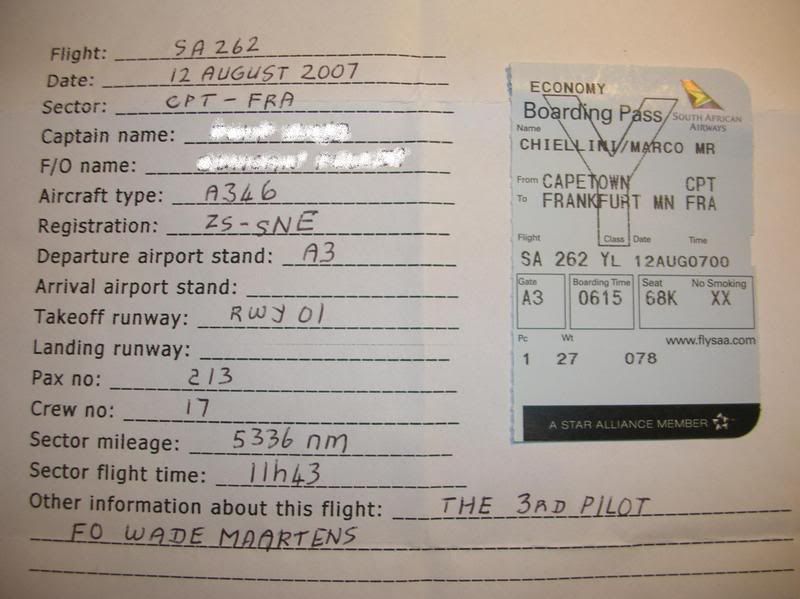 Flight: SA 262
Date: 12 AUGUST 2007
Sector: CPT - FRA
Captain name:
F/O name:
Aircraft type: A346
Registration: ZS-SNE
Departure airport stand: A3
Arrival airport stand:
Takeoff runway: RWY 01
Landing runway:
Pax no: 213
Crew no: 17
Sector mileage: 5336 nm
Sector flight time: 11h43
Other information about this flight: THE 3RD PILOT
FO WADE MAARTENS
ECONOMY
Boarding Pass
SOUTH AFRICAN
AIRWAYS
Name
CHIELLINI/MARCO MR
From CAPETOWN CPT
To FRANKFURT MN FRA
Flight Class Date Time
SA 262 YL 12AUG0700
Gate Boarding Time Seat No Smoking
A3 0615 68K XX
www.flysaa.com
Pc Wt
1 27 078
A STAR ALLIANCE MEMBER